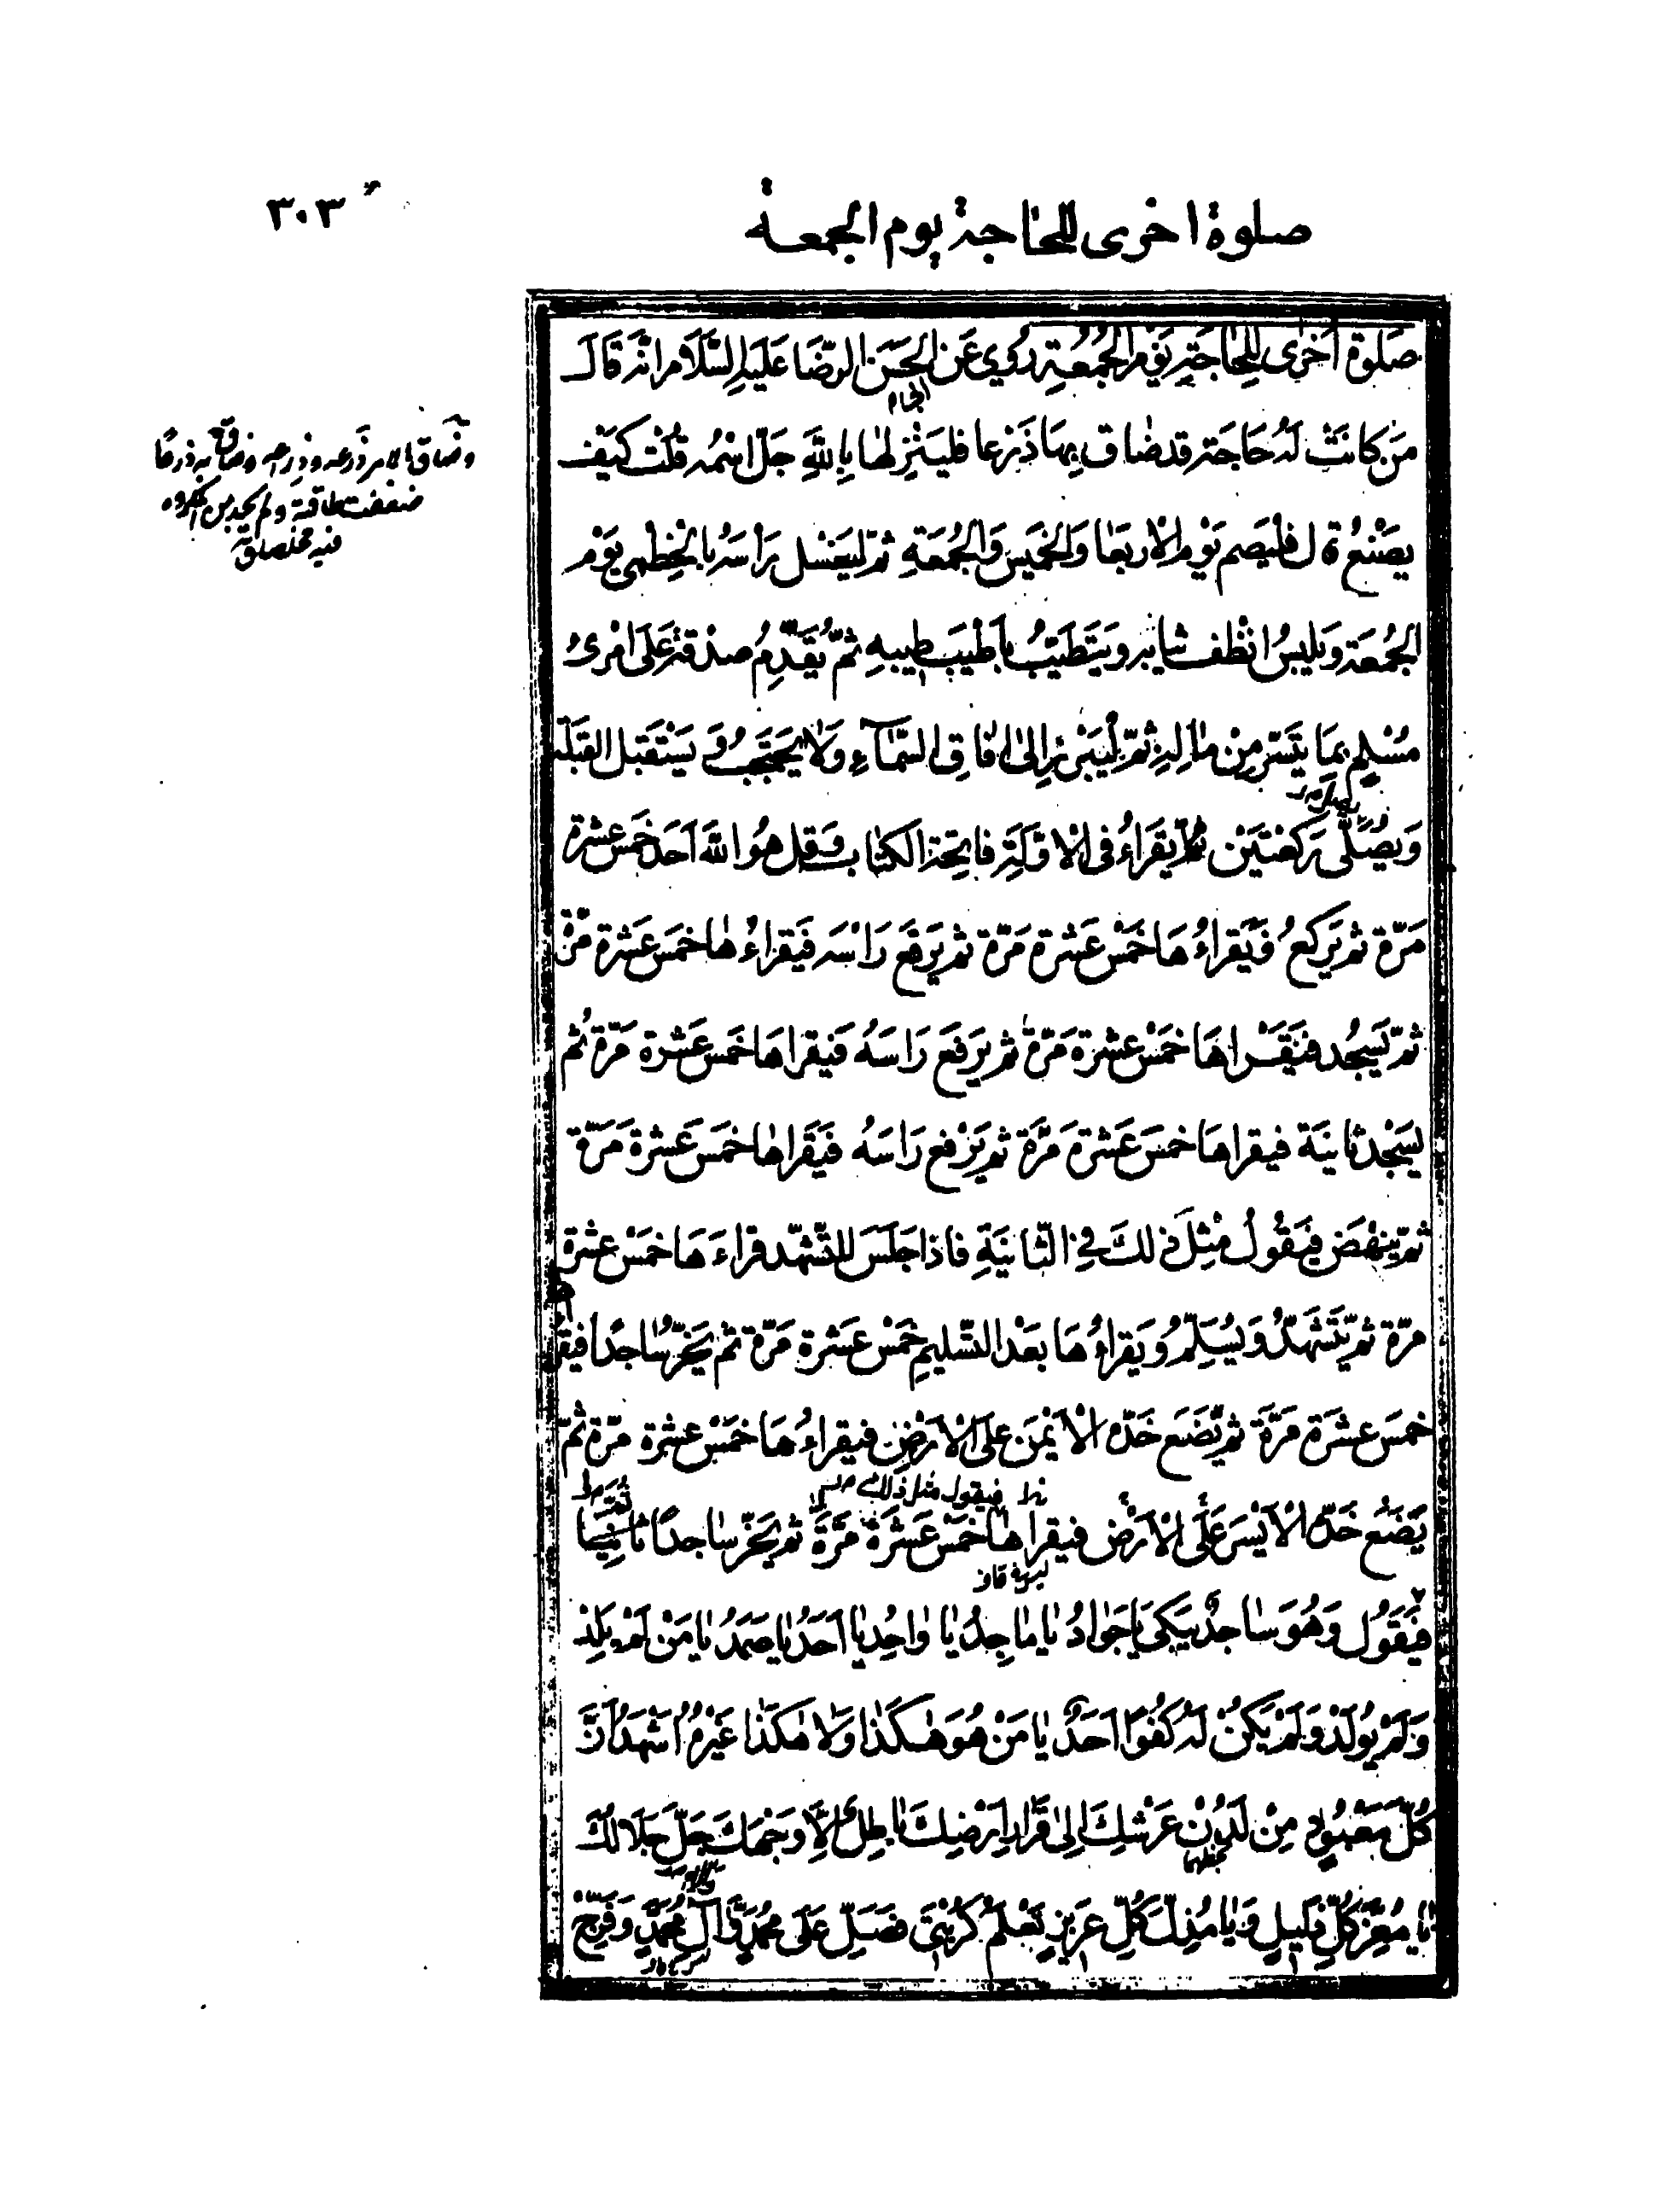 صلوة اخرى للحاجة يوم الجمعة
٣٠٣
صَلوة اُخرىٰ لِلحٰاجَةِ يَوْم الجُمُعَةِ رُوِي عَن الحَسَنِ الرِّضَا عَلَيهِ السَّلَام اَنَّه قَالَ
مَن كانَتْ لَهُ حَاجَة قد ضٰاق بِهَا ذَرْعا فليَنْزِلهٰا بِاللَّهِ جَلّ اسْمُه قُلْت كَيْف
وضَاق الامر ذَرعه وذراعه وضاق به ذرعًا
ضعفت طاقته ولم يجد من المكروه
فيه مخلصا ق
يصْنَعُ قال فليَصم يَوْم الاربَعا وَالخَميس وَالجُمُعَةِ ثمّ ليَغسل رَأسَهُ بالخِطْمى يَوْم
الجُمُعَة وَيلبسُ انْظف ثيابه وَيَتَطَيّبُ باَطْيَب طيبهِ ثمّ يُقَدِّمُ صدْقة عَلَى امْرئ
مُسْلِمٍ بمَا يتَسّر مِنْ مٰالِهِ ثمّ لْيَبْرز اِلىٰ اٰفٰاقِ السَّمٰاءِ وَلاٰ يَحْتَجبُ وَ يَسْتَقبل القبلَة
وَيصَلّى رَكعَتَيْن يَقرَاءُ فى الْاوّلَةِ فاتِحَة الكتٰاب وَقل هُوَ اللَّه اَحَد خَمسَ عشرة
مَرّة ثم يَركعُ فَيَقراءُ هَا خَمْسَ عَشْرة مَرّة ثم يَرفَع رَاْسَه فَيَقراءُ هٰا خمَسَ عَشرة مَرّة
ثمّ يَسجُد فَيَقْراهَا خَمْسَ عشرة مَرّة ثم يَرفَعَ رَاسَهُ فَيقراهَا خَمَس عَشرة مَرّة ثُم
يَسْجُد ثانيَة فيقراهَا خمسَ عَشرة مَرَّة ثم يَرْفع رَاسَهُ فَيَقَراهٰا خمَس عَشرة مَرّة
ثمّ يَنهَض فَيَقُولُ مِثْلَ ذٰلكَ فِي الثّانيَةِ فاذا جَلَسَ للتّشهّد قراءَ هَا خمَسْ عشرة
مرّة ثمّ يَتَشَهّدُ وَ يُسَلِّمُ وَ يَقراءُ هَا بَعْد التسليم خَمْسَ عَشرة مَرّة ثم يَخِرّ سٰاجدًا فيقرا
خمسَ عشَرَة مَرَّة ثم يَضَعَ خَدّه الْاَيْمَنَ عَلَى الْاَرْضِ فيقراءُ هَا خَمْسَ عشرة مرّة ثمّ
فيقول مثل ذلك
يَضَع خَدّه الْاَيْسَر عَلَى الْاَرْض فيقراهٰا خَمْسَ عَشَرَة مَرَّةً ثم يَخرّ سٰاجدًا ثانِيًا
فَيَقَول وَ هُوَ سٰاجدٌ يَبكى يٰا جَوٰادُ يٰا مٰاجِدُ يٰا وٰاحِدُ يٰا اَحَدُ يٰا صَمَدُ يٰا مَنْ لَمْ يَلِدْ
وَ لَمْ يُولَدْ وَ لَمْ يَكُنْ لَهُ كُفُوًا اَحَدٌ يٰا مَنْ هُوَ هٰكَذٰا وَلاٰ هٰكَذٰا غَيْرهُ اَشْهَدُ اَنَّ
كُلَّ مَعْبُودٍ مِنْ لَدُنْ عَرْشِكَ اِلىٰ قَرٰارِ اَرْضِكَ بٰاطِلٌ اِلّاٰ وَجْهَكَ جَلَّ جَلاٰلُكَ
يٰا مُعِزَّ كُلِّ ذَليلٍ وَ يٰا مُذِلَّ كُلِّ عَزيزٍ تَعْلَمُ كُرْبَتى فَصَلِّ عَلىٰ مُحَمَّدٍ وَ اٰلِ مُحَمَّدٍ وَ فَرِّجْ